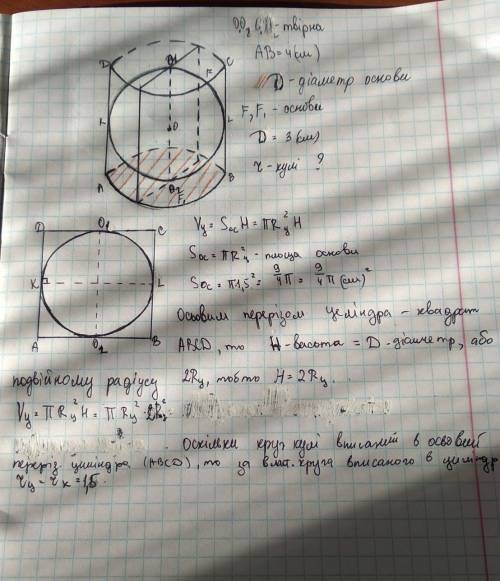 D C
F
K O L
A B
O₂ F₁
твірна
AB = 4 (м)
D - діаметр основи
F, F₁ - основи
D = 3 (м)
r - кулі ?
Vц = Sос H = πRц² H
Sос = πRц² - площа основи
Sос = π1,5² = 9/4 π = 9/4 π (см)²
D O₁ C
K L
A O₂ B
Осьовим перерізом циліндра - квадрат
ABCD, то H - висота = D - діаметр, або
подвійному радіусу 2Rц, тобто H = 2Rц.
Vц = πRц² H = πRц² · 2Rц
Оскільки круг кулі вписаний в осьовий
переріз циліндра (ABCD), то за власт. круга вписаного в циліндр
rц = rк = 1,5.